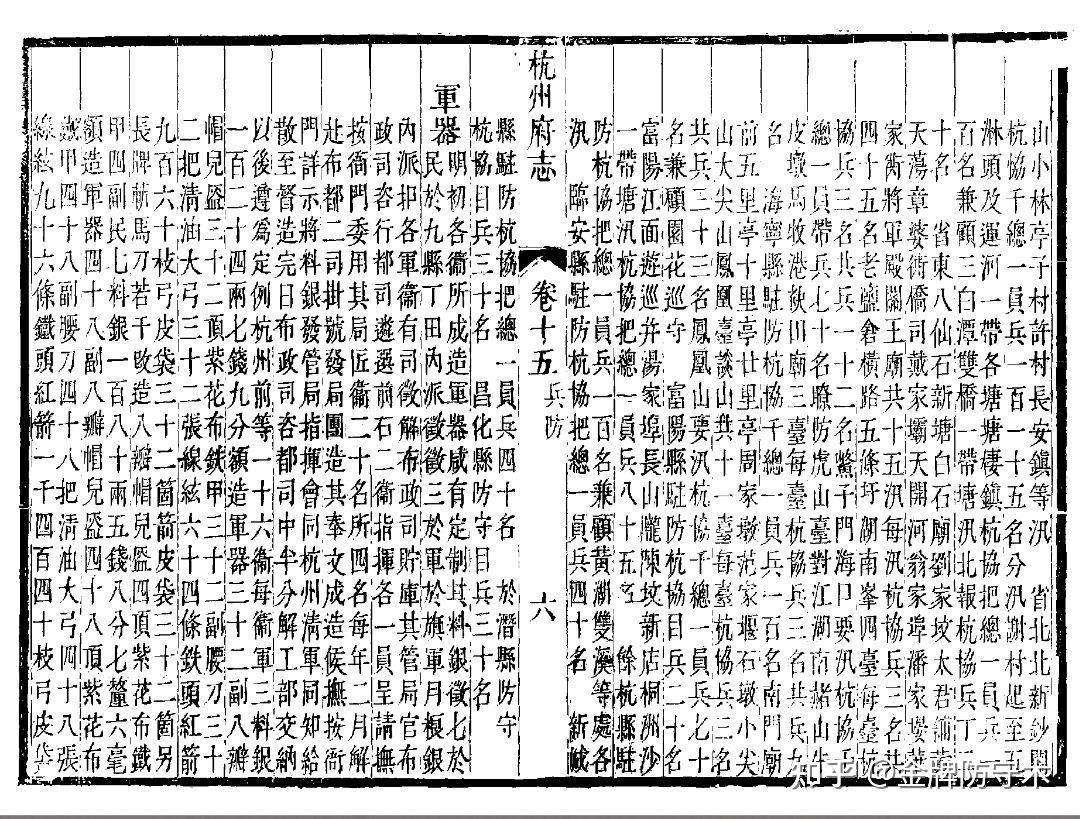 山小林亭子村許村長安鎮等汛　省北北新鈔關
杭協千總一員兵一百一十五名分汛謝村起至五
淋頭及運河一帶各塘塘棲鎮杭協把總一員兵
百名兼顧三白潭雙橋一帶塘汛北報杭協兵丁三
十名　省東八仙石新塘白石廟劉家坡太君
天蕩章婆街僑司戴家壩天開河翁家埠潘家
家衖將軍殿關王廟共十五汛每汛杭協兵
四十五名老鹽倉橫路五條圩翩南峯四臺每臺杭
協兵三名共兵一十二名鱉子門海口要汛杭協千
總一員帶兵七十名瞭防虎山臺對江湖南赭山牛
皮墩馬牧港扻田廟三臺每臺杭協兵三名共兵九
名　海寧縣駐防杭協千總一員兵一百名南門廟
前五里亭十里亭廿里亭周家墩范家堰石墩小尖
山大尖山鳳凰臺談山共十一臺每臺杭協兵三名
共兵三十三名鳳凰山要汛杭協千總一員兵七十
名兼顧園花巡守　富陽縣駐防杭協目兵二十名
富陽江面遊巡并湯家埠長山隴陳墳新店桐洲沙
一帶塘汛杭協把總一員兵八十五名　餘杭縣駐
防杭協把總一員兵一百名兼顧黃湖雙溪等處各
汛　臨安縣駐防杭協把總一員兵四十名　新城
杭州府志　卷十五　兵防　六
縣駐防杭協把總一員兵四十名　於潛縣防守
杭協目兵三十名　昌化縣防守目兵三十名
軍器　明初各衞所成造軍器咸有定制其料銀徵七於
民於九縣丁田內派徵徵三於軍於旗軍月糧銀
內派扣各軍衞有司徵解布政司貯庫其管局官布
政司咨行都司遴選前右二衞指揮各一員呈請撫
按衙門委用其局匠衞二十名所四名每年二月解
赴布都二司批號發局團造其奉文成造候撫按衙
門詳示將料銀發管局指揮會同杭州清軍同知給
散至督造完日布政司咨都司中半分解工部交納
以後遵爲定例杭州前等一十六衞每衞軍三料銀
一百二十四兩七錢九分額造軍器三十二副八瓣
帽兒盔三十二頂紫花布鉄甲三十二副腰刀三十
二把清油大弓三十二張線絃六十四條鉄頭紅箭
九百六十枝弓皮袋三十二箇箭皮袋三十二箇另
長牌斬馬刀若干敀造八瓣帽兒盔四頂紫花布鐵
甲四副民七料銀一百八十兩五錢八分七釐六毫
額造軍器四十八副八瓣帽兒盔四十八頂紫花布
鐵甲四十八副腰刀四十八把清油大弓四十八張
線絃九十六條鐵頭紅箭一千四百四十枝弓皮袋
知乎 @金牌防守未